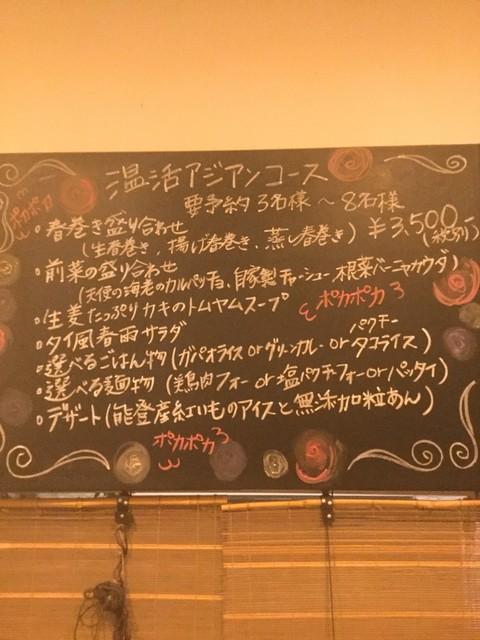 温活アジアンコース
要予約 3名様～8名様
ポカポカ
・春巻き盛り合わせ
(生春巻き、揚げ春巻き、蒸し春巻き) ¥3,500-
(税別)
・前菜の盛り合わせ
(天使の海老のカルパッチョ、自家製チャーシュー 根菜バーニャカウダ)
・生姜たっぷりカキのトムヤムスープ
ポカポカ
・タイ風春雨サラダ
パクチー
・選べるごはん物 (ガパオライス or グリーンカレー or タコライス)
・選べる麺物 (鶏肉フォー or 塩パクチーフォー or パッタイ)
・デザート (能登産紅いものアイスと無添加粒あん)
ポカポカ